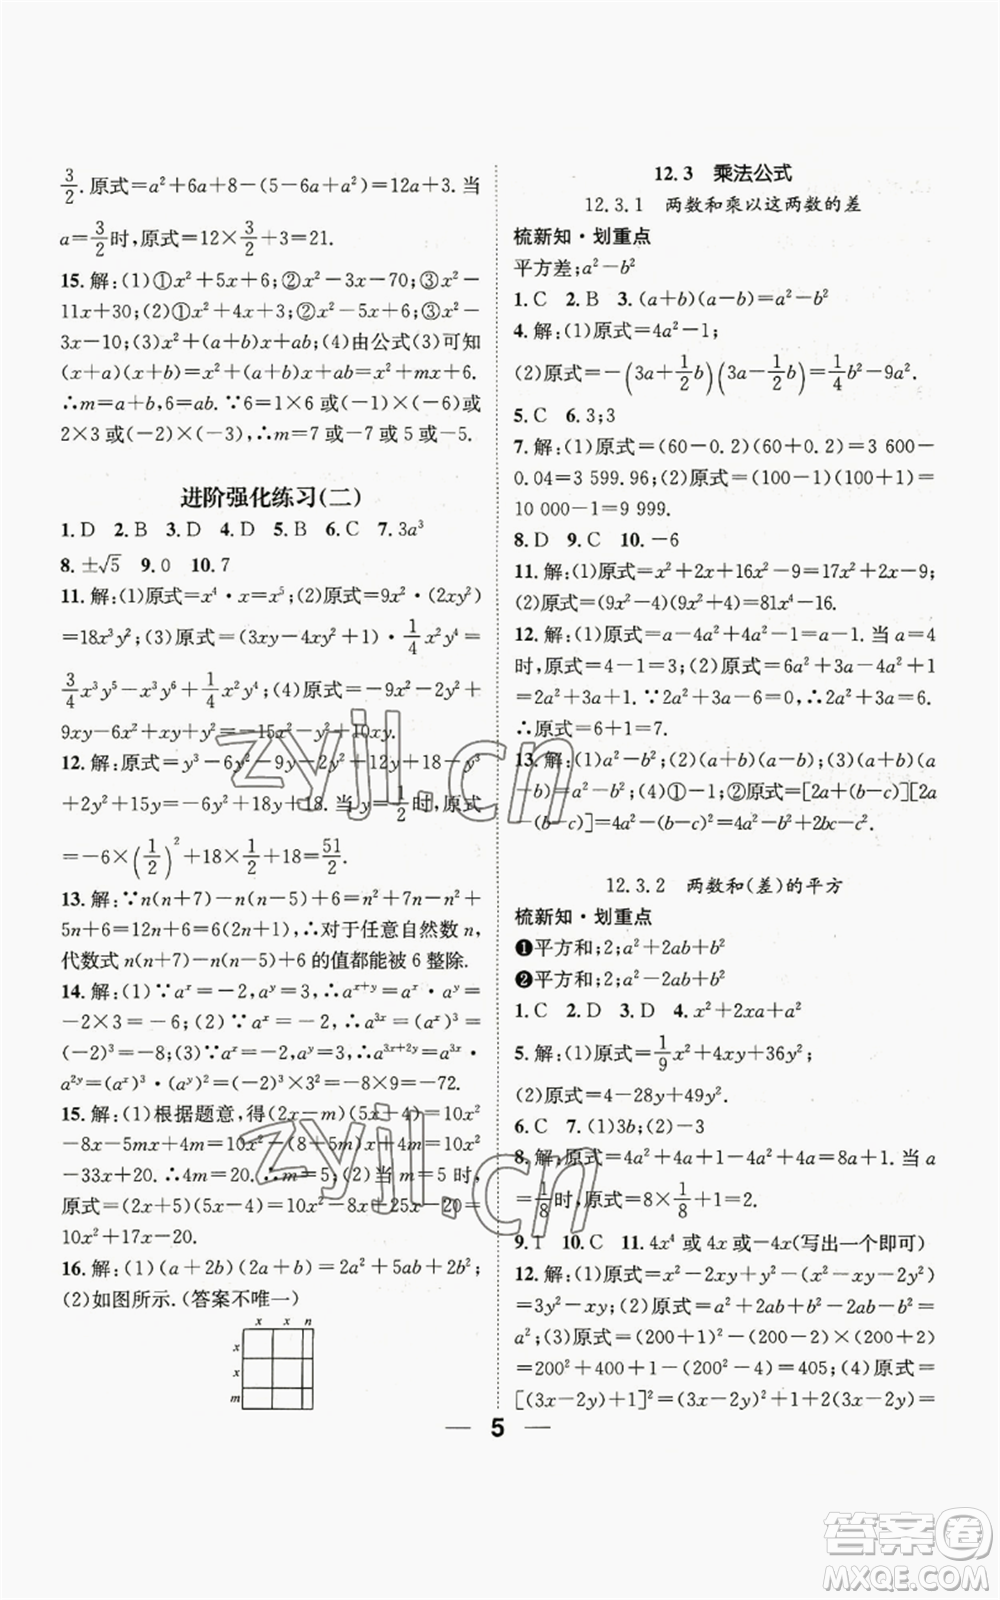 3/2.原式=a²+6a+8-(5-6a+a²)=12a+3.当
a=3/2时,原式=12×3/2+3=21.
15.解:(1)①x²+5x+6;②x²-3x-70;③x²
-11x+30;(2)①x²+5x+6;②x²-3x-10;③x²-
3x-10;(3)x²+(a+b)x+ab;(4)由公式(3)可知
(x+a)(x+b)=x²+(a+b)x+ab=x²+mx+6.
∴m=a+b,6=ab.∵6=1×6或(-1)×(-6)或
2×3或(-2)×(-3),∴m=7或-7或5或-5.
进阶强化练习(二)
1.D 2.B 3.D 4.D 5.B 6.C 7.3a³
8.±√5 9.0 10.7
11.解:(1)原式=x⁴·x=x⁵;(2)原式=9x²·(2xy²)
=18x³y²;(3)原式=(3xy-4xy²+1)·1/4x²y⁴=
3/4x³y⁵-x³y⁶+1/4x²y⁴;(4)原式=-9x²-y²+
9xy-6x²+xy+y²=-15x²-y²+10xy.
12.解:原式=y³-6y²-9y-2y²+12y+18-y³
+2y²=-6y²+18y+18.当y=1/2时,原式
=-6×(1/2)²+18×1/2+18=51/2.
13.解:∵n(n+7)-n(n-5)+6=n²+7n-n²+
5n+6=12n+6=6(2n+1),∴对于任意自然数n,
代数式n(n+7)-n(n-5)+6的值都能被6整除.
14.解:(1)∵aˣ=-2,aʸ=3,∴aˣ⁺ʸ=aˣ·aʸ=
-2×3=-6;(2)∵aˣ=-2,∴a³ˣ=(aˣ)³=
(-2)³=-8;(3)∵aˣ=-2,aʸ=3,∴a³ˣ⁺²ʸ=a³ˣ·
a²ʸ=(aˣ)³·(aʸ)²=(-8)×3²=-8×9=-72.
15.解:(1)根据题意,得(2x-m)(5x-4)=10x²
-8x-5mx+4m=10x²-(8+5m)x+4m=10x²
-33x+20.∴4m=20.∴m=5;(2)当m=5时,
原式=(2x+5)(5x-4)=10x²-8x+25x-20=
10x²+17x-20.
16.解:(1)(a+2b)(2a+b)=2a²+5ab+2b²;
(2)如图所示.(答案不唯一)
x x n
x
x
m
12.3 乘法公式
12.3.1 两数和乘以这两数的差
梳新知·划重点
平方差;a²-b²
1.C 2.B 3.(a+b)(a-b)=a²-b²
4.解:(1)原式=4a²-1;
(2)原式=-(3a+1/2b)(3a-1/2b)=1/4b²-9a².
5.C 6.3;3
7.解:(1)原式=(60-0.2)(60+0.2)=3 600-
0.04=3 599.96;(2)原式=(100-1)(100+1)=
10 000-1=9 999.
8.D 9.C 10.-6
11.解:(1)原式=x²+2x+16x²-9=17x²+2x-9;
(2)原式=(9x²-4)(9x²+4)=81x⁴-16.
12.解:(1)原式=a-4a²+4a²-1=a-1.当a=4
时,原式=4-1=3;(2)原式=6a²+3a-4a²+1
=2a²+3a+1.∵2a²+3a-6=0,∴2a²+3a=6.
∴原式=6+1=7.
13.解:(1)a²-b²;(2)(a+b)(a-b);(3)(a+b)(a
-b)=a²-b²;(4)①-1;②原式=[2a+(b-c)][2a
-(b-c)]=4a²-(b-c)²=4a²-b²+2bc-c².
12.3.2 两数和(差)的平方
梳新知·划重点
❶平方和;2;a²+2ab+b²
❷平方和;2;a²-2ab+b²
1.C 2.D 3.D 4.x²+2xa+a²
5.解:(1)原式=1/9x²+4xy+36y²;
(2)原式=4-28y+49y².
6.C 7.(1)3b;(2)-3
8.解:原式=4a²+4a+1-4a²+4a=8a+1.当a
=1/8时,原式=8×1/8+1=2.
9.1 10.C 11.4x⁴或4x或-4x(写出一个即可)
12.解:(1)原式=x²-2xy+y²-(x²-xy-2y²)
=3y²-xy;(2)原式=a²+2ab+b²-2ab-b²=
a²;(3)原式=(200+1)²-(200-2)×(200+2)
=200²+400+1-(200²-4)=405;(4)原式=
[(3x-2y)+1]²=(3x-2y)²+1+2(3x-2y)=
5
zyjl.cn
zyjl.cn
答案圈
MXQE.COM